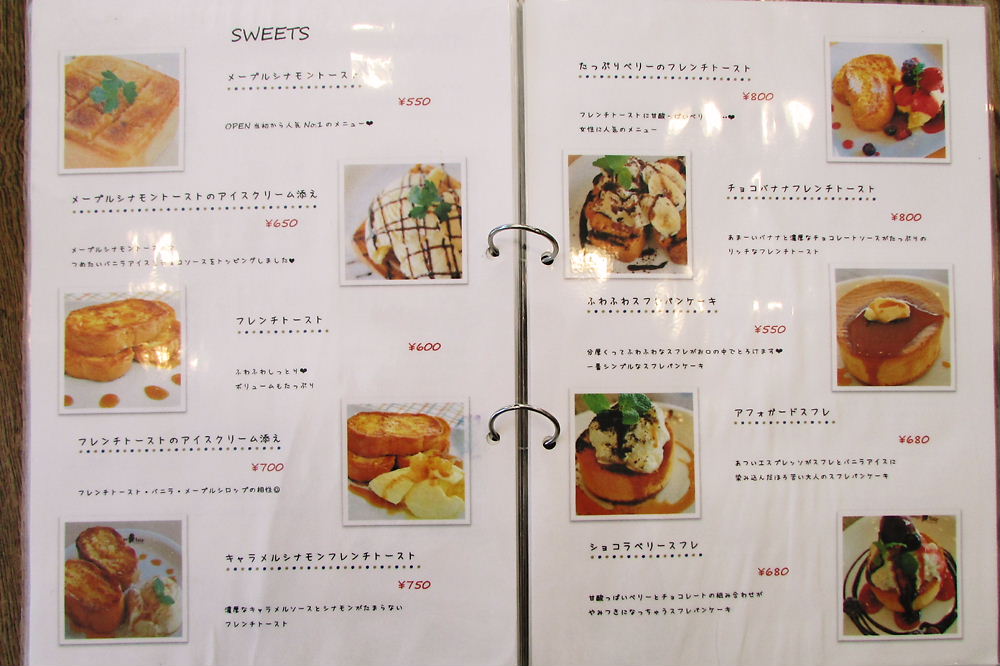 SWEETS
メープルシナモントースト
¥550
OPEN当初から人気No.1のメニュー❤
メープルシナモントーストのアイスクリーム添え
¥650
メープルシナモントースト
つめたいバニラアイス チョコソースをトッピングしました❤
フレンチトースト
¥600
ふわふわしっとり❤
ボリュームもたっぷり
フレンチトーストのアイスクリーム添え
¥700
フレンチトースト・バニラ・メープルシロップの相性◎
キャラメルシナモンフレンチトースト
¥750
濃厚なキャラメルソースとシナモンがたまらない
フレンチトースト
たっぷりベリーのフレンチトースト
¥800
フレンチトーストに甘酸っぱいベリ
女性に人気のメニュー
チョコバナナフレンチトースト
¥800
あまーいバナナと濃厚なチョコレートソースがたっぷりの
リッチなフレンチトースト
ふわふわスフレパンケーキ
¥550
分厚くってふわふわなスフレがお口の中でとろけます❤
一番シンプルなスフレパンケーキ
アフォガードスフレ
¥680
あついエスプレッソがスフレとバニラアイスに
染み込んだほろ苦い大人のスフレパンケーキ
ショコラベリースフレ
¥680
甘酸っぱいベリーとチョコレートの組み合わせが
やみつきになっちゃうスフレパンケーキ